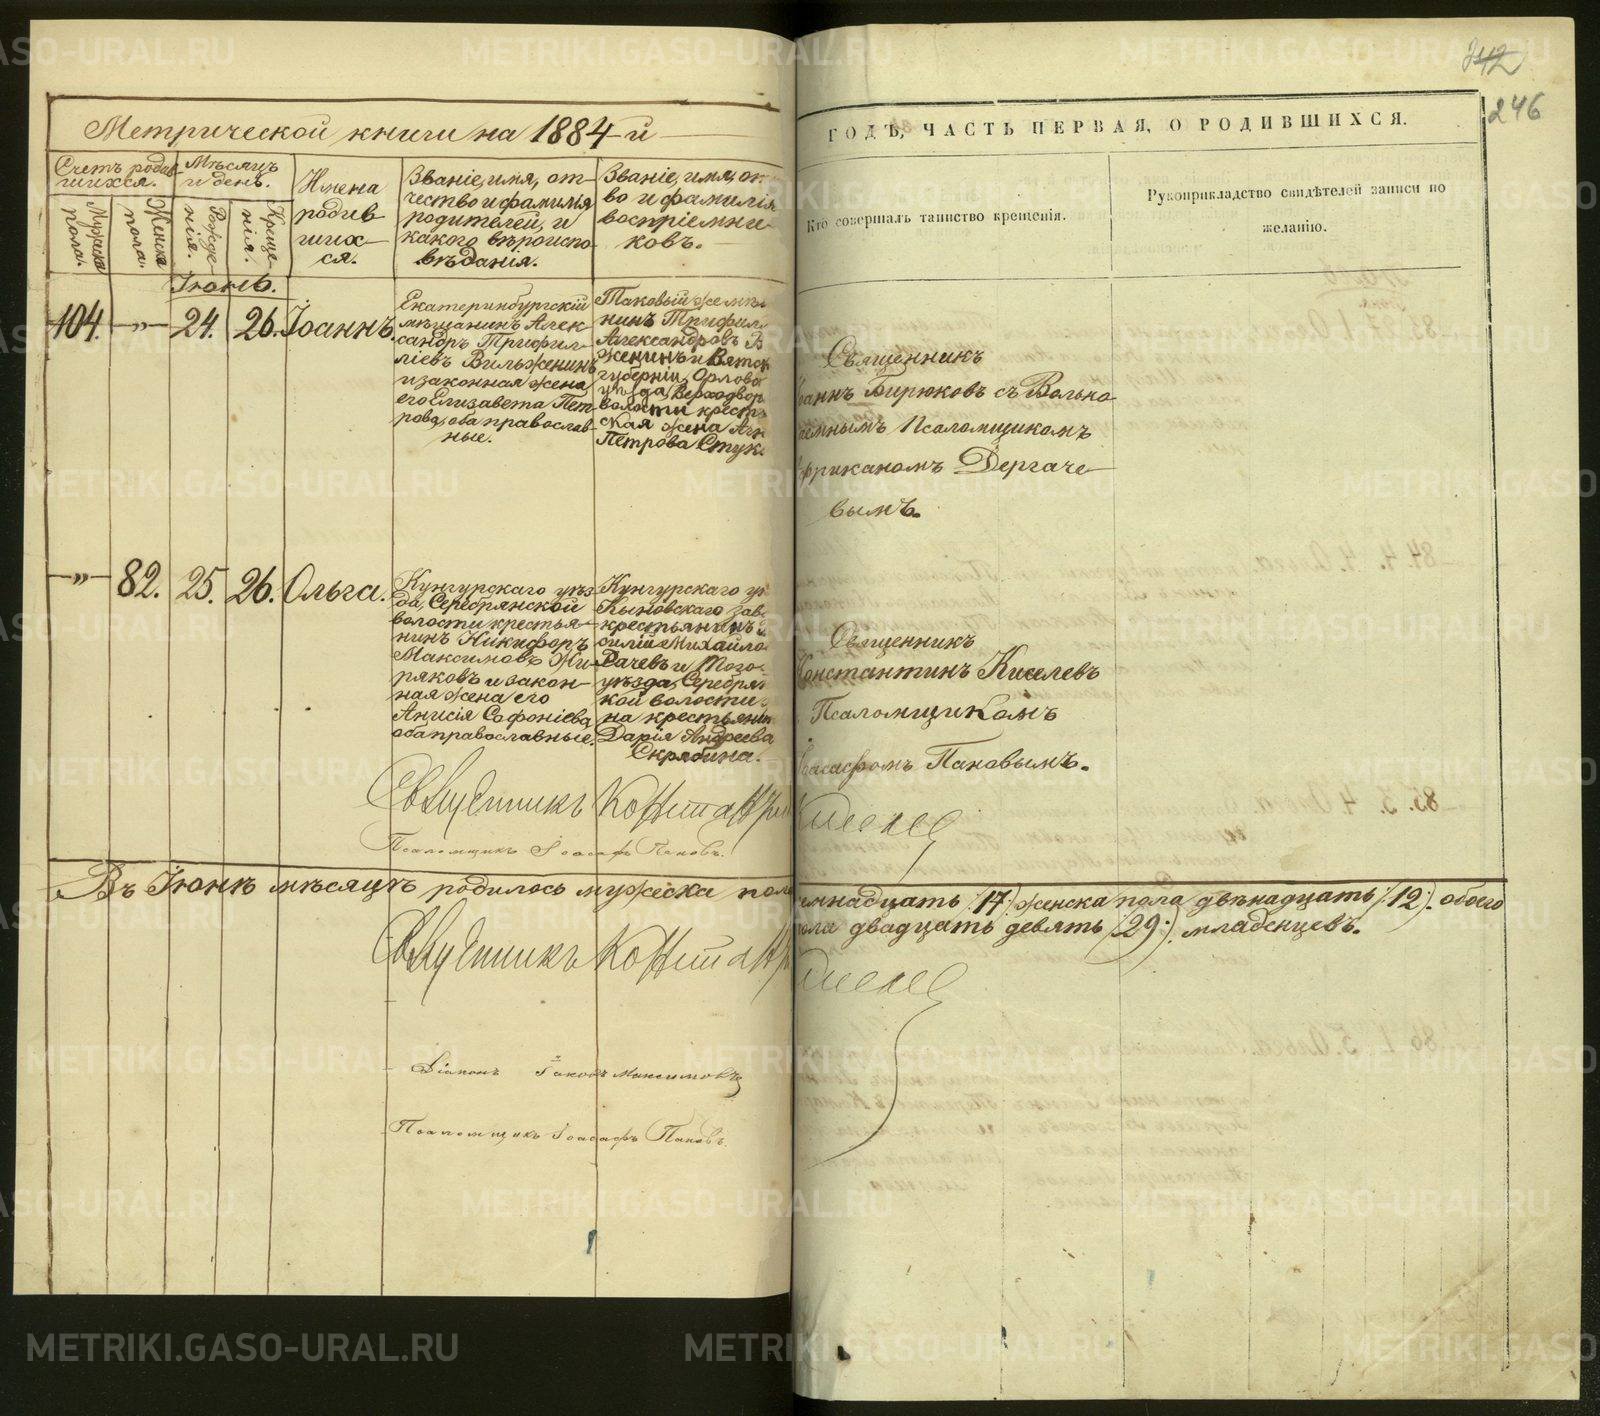 342
246
Метрической книги на 1884-й
ГОДЪ, ЧАСТЬ ПЕРВАЯ, О РОДИВШИХСЯ.
Счетъ родив-
шихся.
Мужска
пола.
Женска
пола.
Мѣсяцъ
и день.
Рожде-
нія.
Креще-
нія.
Имена
родив
ших-
ся.
Званіе, имя, от-
чество и фамилія
родителей, и
какого вѣроиспо-
вѣданія.
Званіе, имя, от-
во и фамилія
воспріемни-
ковъ.
Кто совершалъ таинство крещенія.
Рукоприкладство свидѣтелей записи по
желанію.
Іюнь.
104. -„- 24. 26. Іоаннъ.
Екатеринбургскій
мѣщанинъ Алек-
сандръ Трифил-
ліевъ Вильженинъ
и законная жена
его Елизавета Пет-
рова, оба православ-
ные.
Таковый же мѣщ
нинъ Трифил
Александровъ В
женинъ и Вятск
губерніи, Орлов
уѣзда, Верходвор
волости крест
ская жена Агн
Петрова Стук
Священникъ
оаннъ Бирюковъ съ Вольно-
емнымъ Псаломщикомъ
фриканомъ Дергаче-
вымъ.
-„- 82. 25. 26. Ольга.
Кунгурскаго уѣз
да, Серебрянской
волости крестья-
нинъ Никифоръ
Максимовъ Жи-
ряковъ и закон-
ная жена его
Анисія Софоніева
оба православные.
Кунгурскаго уѣ
Кыновскаго зав
крестьянинъ
силій Михайло
Рачевъ и Того
уѣзда, Серебрян
кой волости
на крестьянин
Дарія Андреева
Скрябина.
Священникъ
онстантинъ Киселевъ
Псаломщикомъ
оасафомъ Пановымъ.
Священникъ Константинъ Киселев
Псаломщикъ Іоасафъ Пановъ.
Въ Іюнѣ мѣсяцѣ родилось мужеска пола
емнадцать /17/. женска пола двѣнадцать /:12:/. обоего
пола двадцать девять /29:/. младенцевъ.
Священникъ Константинъ Киселев
Діаконъ Іаковъ Максимовъ
Псаломщикъ Іоасафъ Пановъ.
METRIKI.GASO-URAL.RU